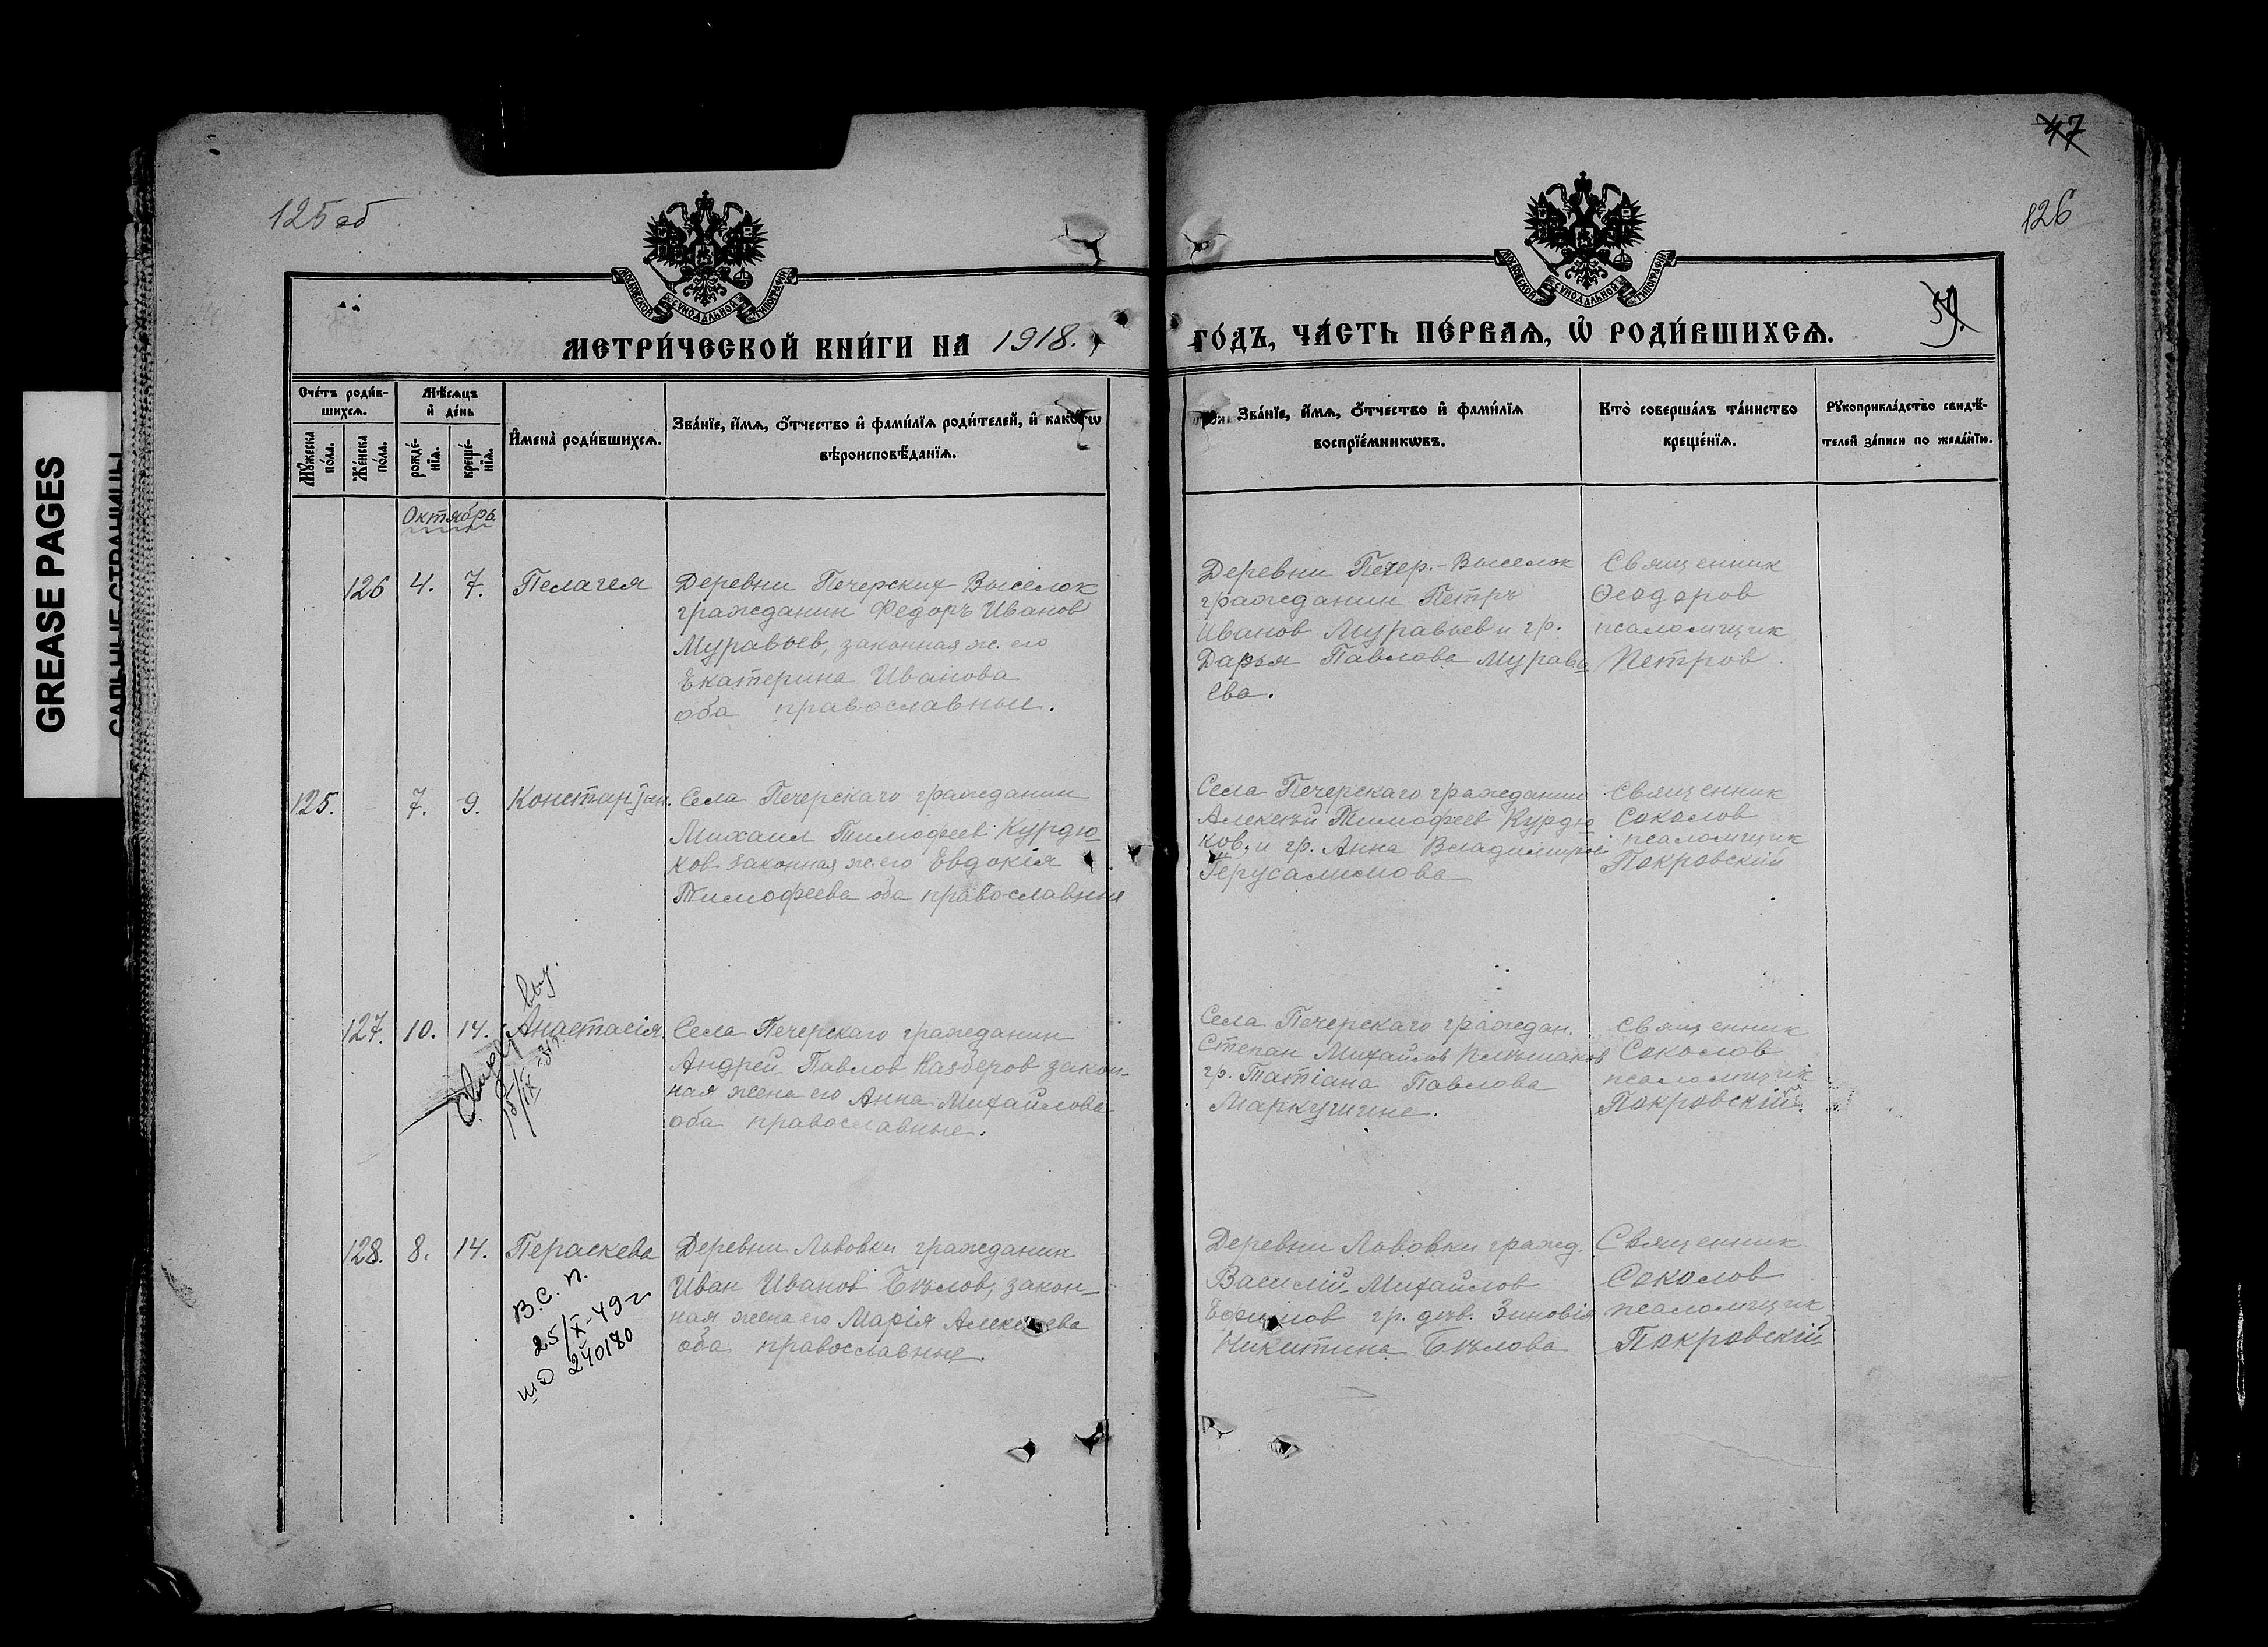 GREASE PAGES
125 об
47
126
МОСКОВСКОЙ СѴНОДАЛЬНОЙ ТИПОГРАФІИ
МОСКОВСКОЙ СѴНОДАЛЬНОЙ ТИПОГРАФІИ
МЕТРИ́ЧЕСКОЙ КНИ́ГИ НА 1918.
ГО́ДЪ, ЧА́СТЬ ПЕ́РВАѦ, Ѽ РОДИ́ВШИХСѦ.
Сче́тъ роди́в-
шихсѧ.
Мѣ́сѧцъ
и҆ де́нь
Мꙋ́жеска
по́ла.
Же́нска
по́ла.
рожде́-
нїѧ.
креще́-
нїѧ.
И҆мена̀ роди́вшихсѧ.
Зва́нїе, и҆́мѧ, ѻ҆́тчество и҆ фами́лїѧ роди́телей, и҆ како́гѡ
вѣроисповѣ́данїѧ.
Зва́нїе, и҆́мѧ, ѻ҆́тчество и҆ фами́лїѧ
воспрїе́мникѡвъ.
Кто̀ соверша́лъ та́инство
креще́нїѧ.
Рꙋкоприкла́дство свидѣ́-
телей за́писи по жела́нїю.
Октябрь
126 4. 7. Пелагея
Деревни Печерских Выселок
гражданин Федоръ Иванов
Муравьев, законная ж. его
Екатерина Иванова
оба православные.
Деревни Печер.-Выселок
гражданин Петръ
Иванов Муравьев и гр.
Дарья Павлова Муравь
ева.
Священник
Феодоров
псаломщик
Петров
125. 7. 9. Константин.
Села Печерскаго гражданин
Михаил Тимофеев Курдю-
ков законная ж. его Евдокія
Тимофеева оба православные
Села Печерскаго гражданин
Алексѣй Тимофеев Курдю
ков, и гр. Анна Владимиров.
Іерусалимова
Священник
Соколов
псаломщик
Покровскій
выд.
127. 10. 14. Анастасія.
Села Печерскаго гражданин
Андрей Павлов Назеров закон-
ная жена его Анна Михайлова
оба православные.
Села Печерскаго граждан.
Степан Михайлов
гр. Татіана Павлова
Маркушина.
Священник
Соколов
псаломщик
Покровскій.
15/IX
128. 8. 14. Пераскева
Деревни Львовки гражданин
Иван Иванов Бѣлов, закон-
ная жена его Марія Алексѣева
оба православные.
Деревни Львовки гражд.
Василій Михайлов
Ефимов гр. дѣв. Зиновія
Никитина Бѣлова
Священник
Соколов
псаломщик
Покровскій
В.С. п.
25/X-49 г
ШО 240180